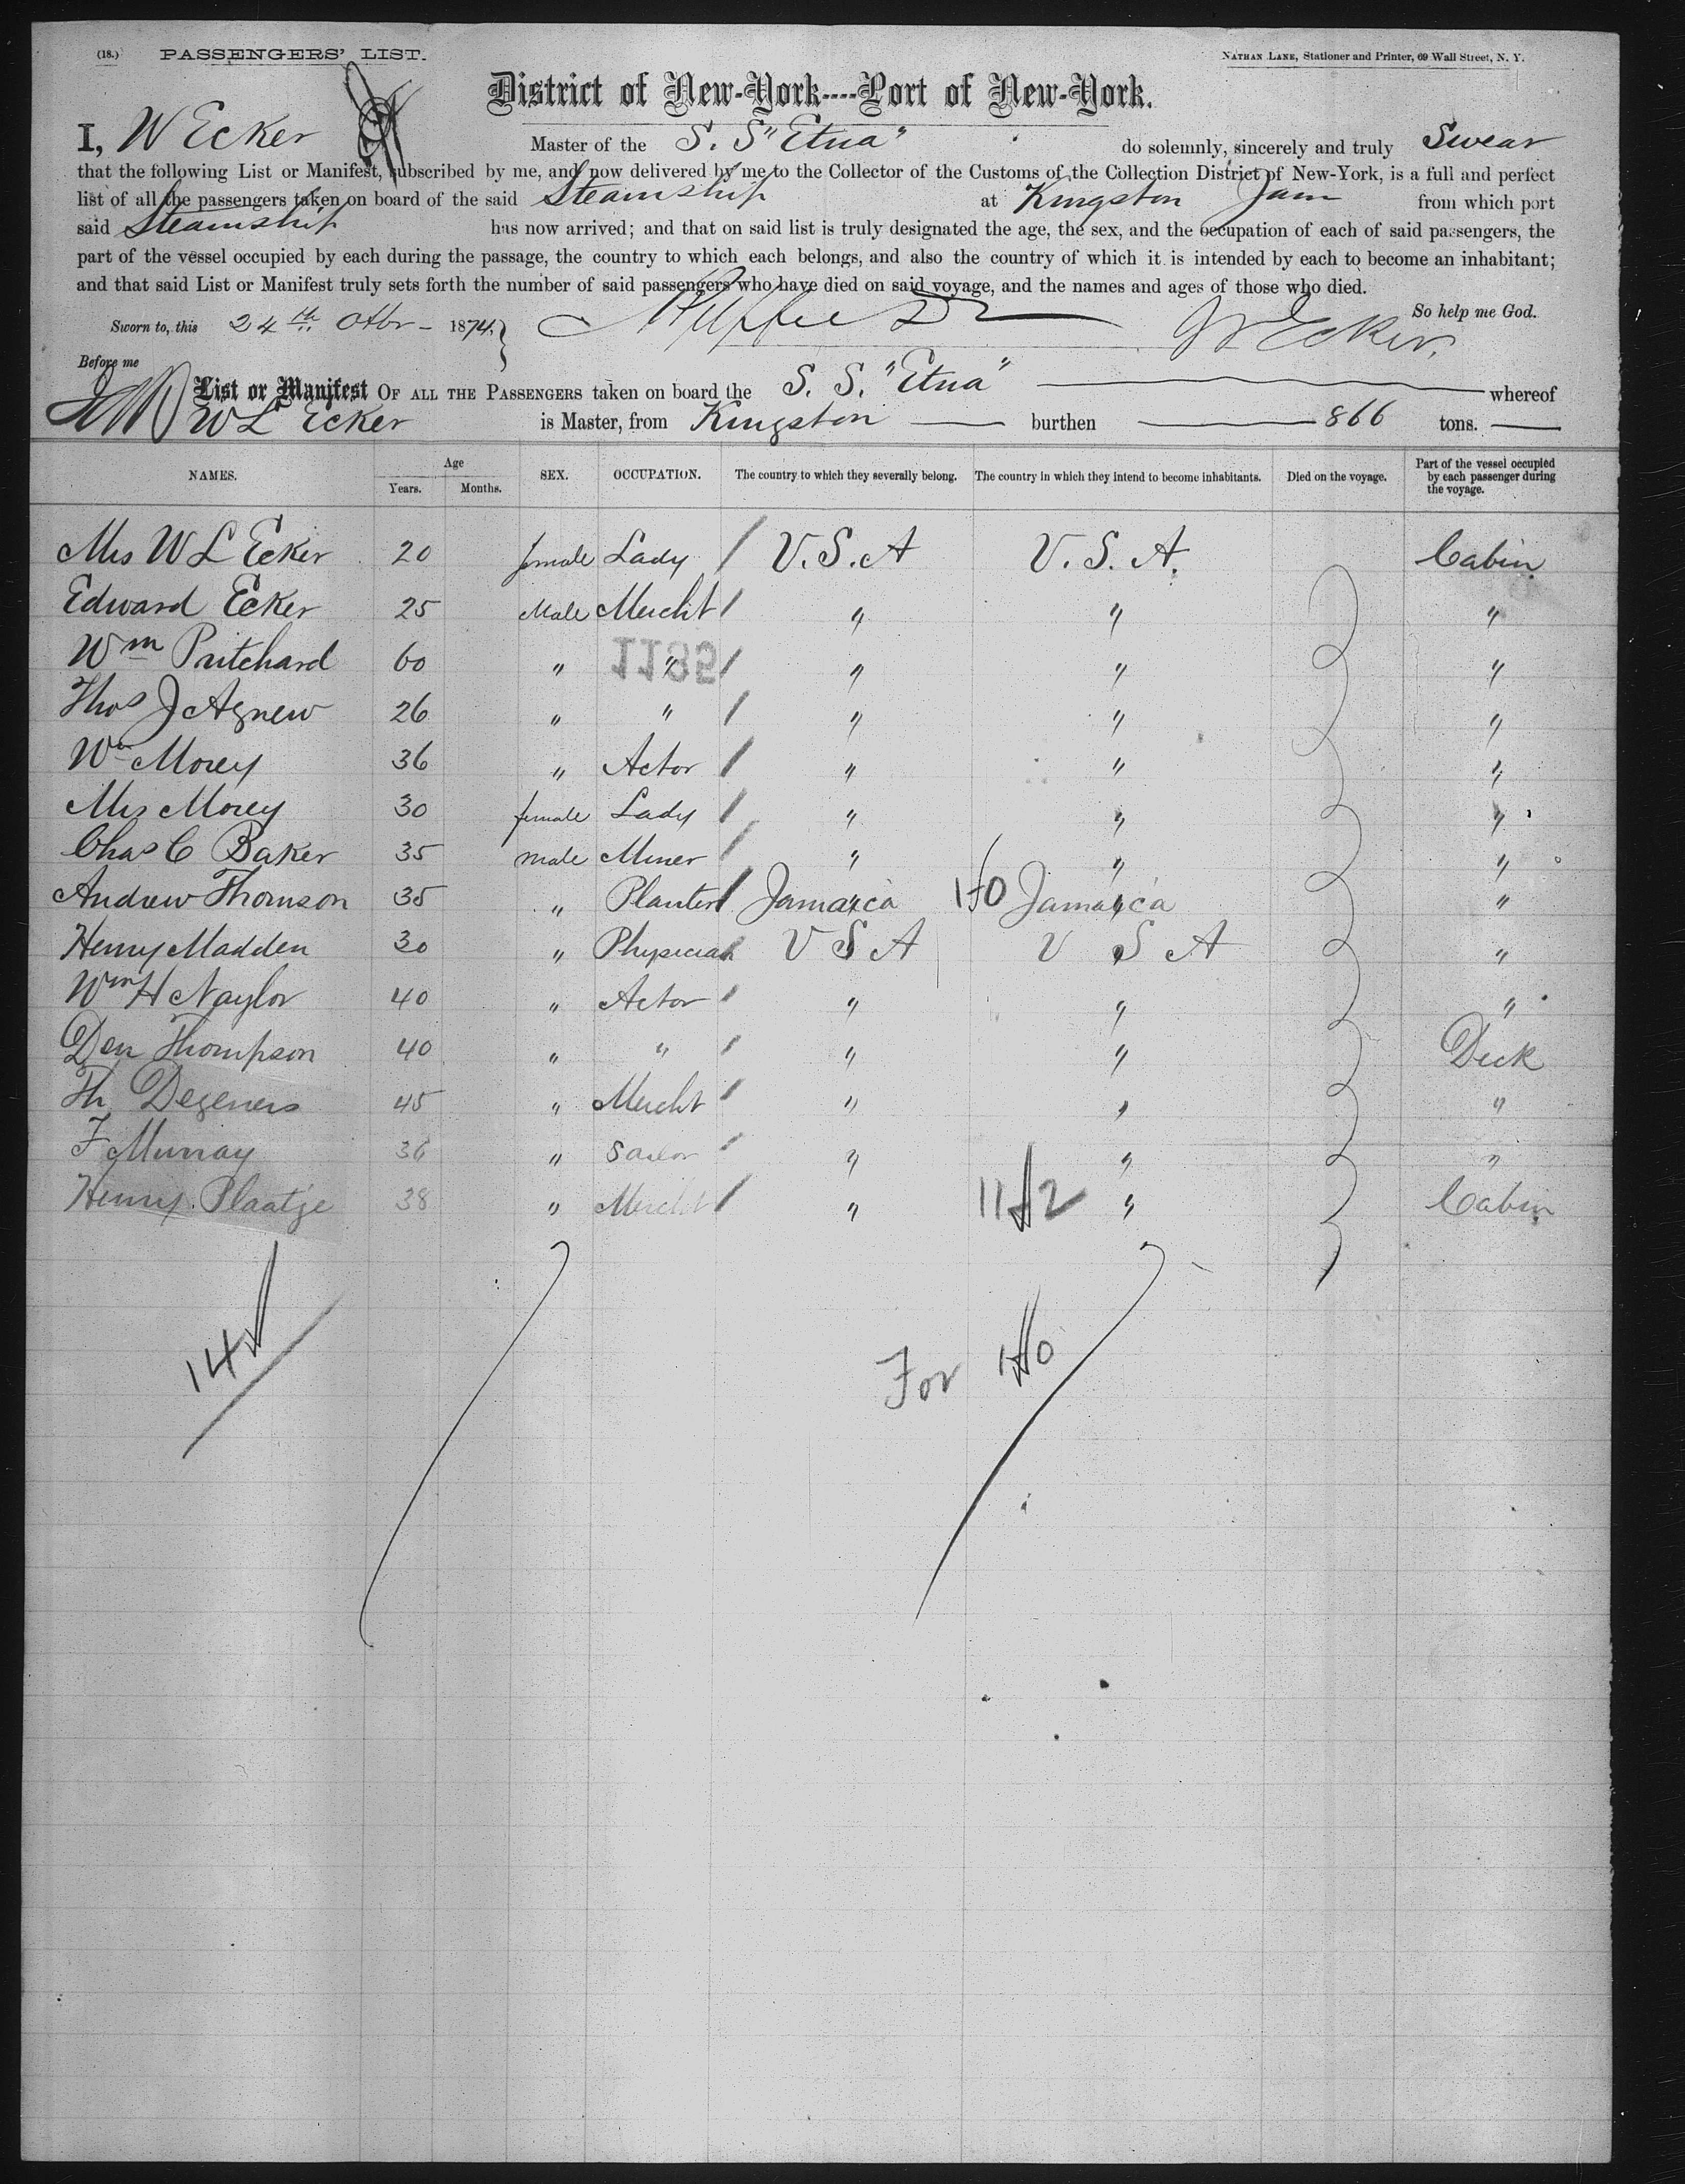 (18.) PASSENGERS' LIST. NATHAN LANE, Stationer and Printer, 69 Wall Street, N. Y.
District of New-York----Port of New-York.
I, W Ecker Master of the S. S "Etna" do solemnly, sincerely and truly Swear
that the following List or Manifest, subscribed by me, and now delivered by me to the Collector of the Customs of the Collection District of New-York, is a full and perfect
list of all the passengers taken on board of the said Steamship at Kingston Jam from which port
said Steamship has now arrived; and that on said list is truly designated the age, the sex, and the occupation of each of said passengers, the
part of the vessel occupied by each during the passage, the country to which each belongs, and also the country of which it is intended by each to become an inhabitant;
and that said List or Manifest truly sets forth the number of said passengers who have died on said voyage, and the names and ages of those who died.
So help me God.
Sworn to, this 24th Otbr - 1874. W L Ecker.
Before me
List or Manifest OF ALL THE PASSENGERS taken on board the S. S. "Etna" whereof
W L Ecker is Master, from Kingston burthen 866 tons.
NAMES. Age Years. Months. SEX. OCCUPATION. The country to which they severally belong. The country in which they intend to become inhabitants. Died on the voyage. Part of the vessel occupied by each passenger during the voyage.
Mrs W L Ecker 20 female Lady / U.S.A U.S.A. Cabin
Edward Ecker 25 Male Mercht / " " "
Wm Pritchard 60 " " / " " "
1185
Thos J Agnew 26 " " / " " "
Wm Morey 36 " Actor / " " "
Mrs Morey 30 female Lady / " " "
Chas C Baker 35 male Miner / " " "
Andrew Thomson 35 " Planter / Jamaica 1-0 Jamaica "
Henry Madden 30 " Physician / U S A U S A "
Wm H Naylor 40 " Actor / " " "
Den Thompson 40 " " / " " Deck
Th Degeners 45 " Mercht / " " "
F Murray 36 " Sailor / " " "
Henry Plaatje 38 " Mercht / " 11 2 " Cabin
14
For 1-0